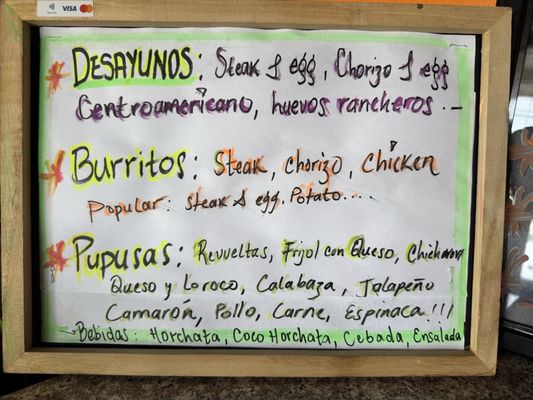 VISA
DESAYUNOS: Steak & egg, Chorizo & egg
Centroamericano, huevos rancheros...
Burritos: Steak, chorizo, chicken
Popular: steak & egg. Potato....
Pupusas: Revueltas, Frijol con Queso, Chicharron
Queso y Loroco, Calabaza, Jalapeño
Camarón, Pollo, Carne, Espinaca!!!
Bebidas: Horchata, Coco Horchata, Cebada, Ensalada